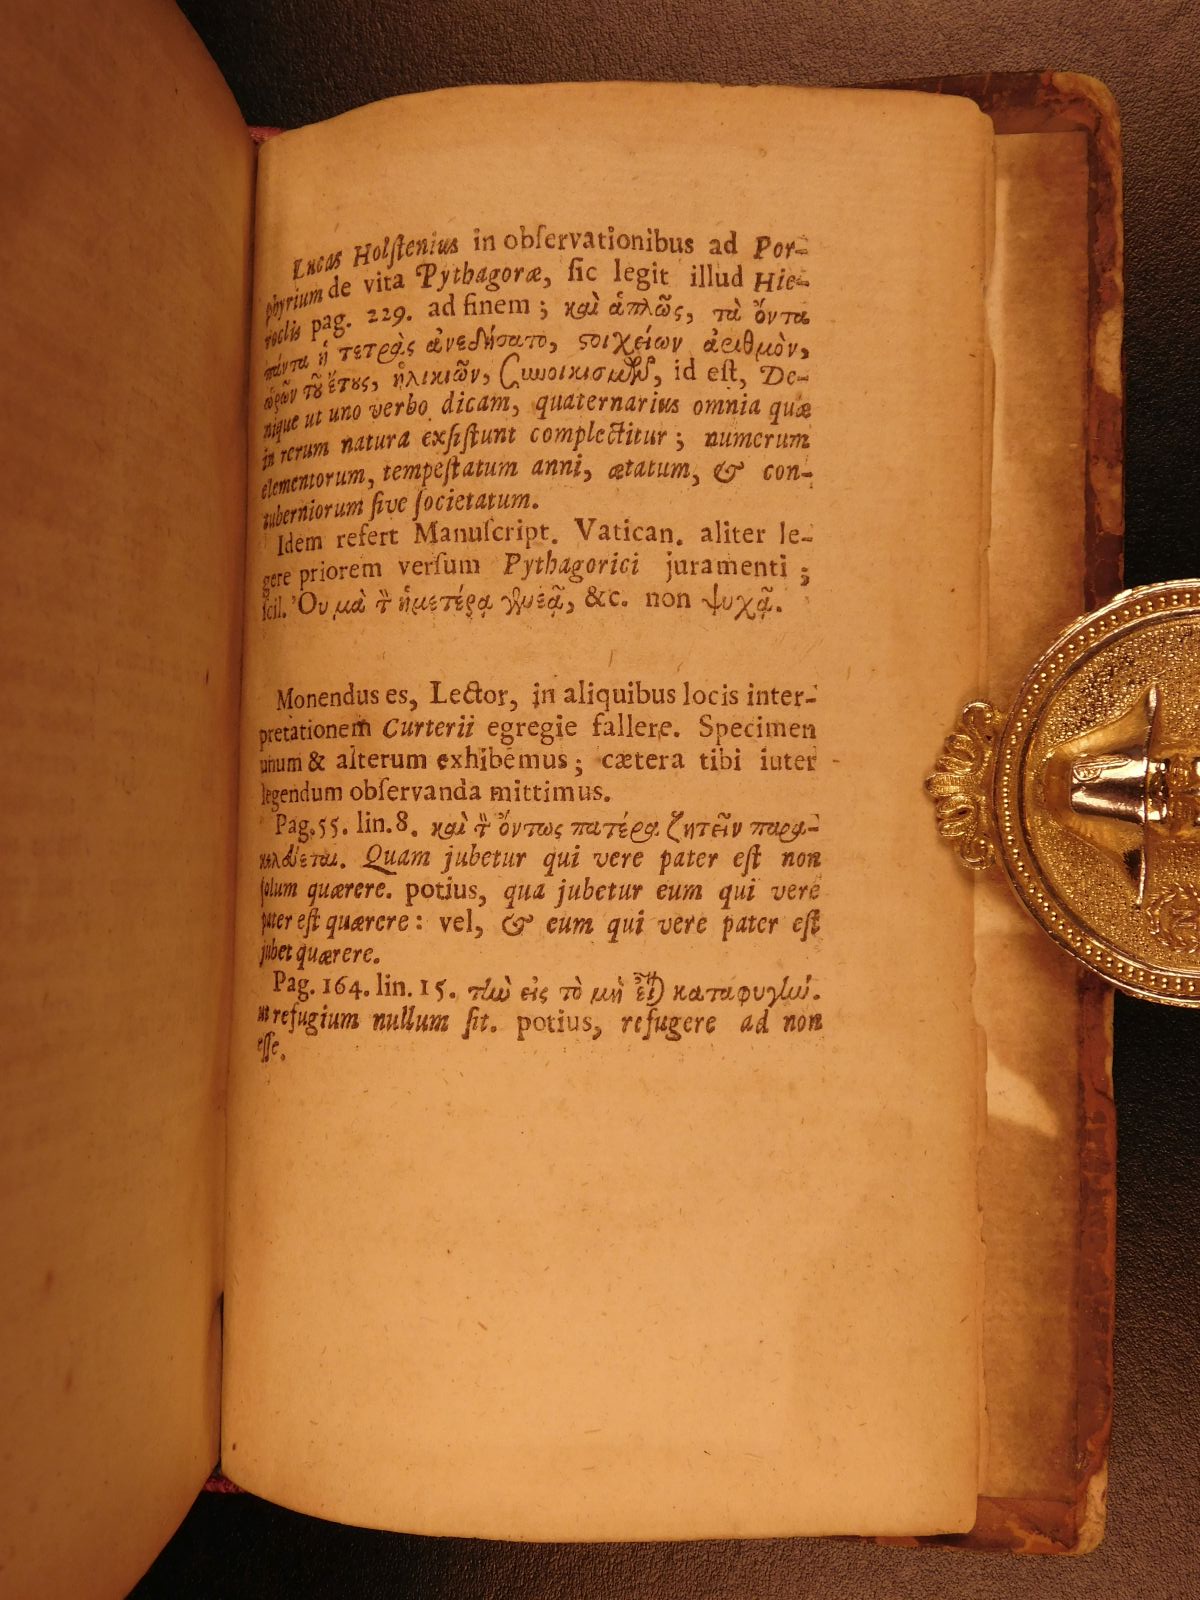 Lucas Holſtenius in obſervationibus ad Por-
phyrium de vita Pythagoræ, ſic legit illud Hie-
roclis pag. 229. ad finem ; καὶ ἁπλῶς, τὰ ὄντα
πάντα ἡ τετρὰς ἀνεδήσατο, ϛοιχείων ἀριθμὸν,
ὡρῶν τοῦ ἔτους, ἡλικιῶν, Συνοικισμῶν, id eſt, De-
nique ut uno verbo dicam, quaternarius omnia quæ
in rerum natura exſiſtunt complectitur ; numerum
elementorum, tempeſtatum anni, ætatum, & con-
tuberniorum ſive ſocietatum.
Idem refert Manuſcript. Vatican. aliter le-
gere priorem verſum Pythagorici juramenti ;
ſcil. Ὀυ μὰ τ ἡμετέρᾳ γενεᾷ, &c. non ψυχᾷ.
Monendus es, Lector, in aliquibus locis inter-
pretationem Curterii egregie fallere. Specimen
unum & alterum exhibemus ; cætera tibi iuter
legendum obſervanda mittimus.
Pag. 55. lin. 8. καὶ τ ὄντως πατέρα ζητεῖν παρα-
κελεύεται. Quam jubetur qui vere pater eſt non
ſolum quærere. potius, qua jubetur eum qui vere
pater eſt quærere : vel, & eum qui vere pater eſt
jubet quærere.
Pag. 164. lin. 15. τὴν εἰς τὸ μὴ εἶναι καταφυγήν.
ut refugium nullum ſit. potius, refugere ad non
eſſe.